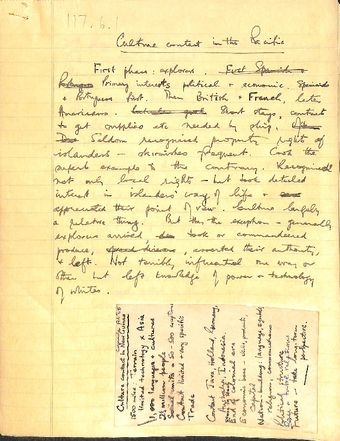 117.6.1
Culture contact in the Pacific
First phase: explorers. First Spanish +
Portugese Primary interests political + economic. Spaniards
+ Portuguese first. Then British + French, later
Americans. Short stays, contacts
to get supplies etc needed by ship.
Seldom recognised property rights of
islanders - skirmishes frequent. Cook the
superb example to the contrary. Recognised
not only local rights - but took detailed
interest in islanders' way of life +
appreciated their point of view. Culture largely
a relative thing. But this the exception - generally
explorers arrived, took or commandeered
produce, asserted their authority,
+ left. Not terribly influential one way or
other but left knowledge of power + technology
of whites.
Culture contact in New Guinea
1500 miles: Terrain
Limited technology x Asia
languages + Cultures
2½ million people
Social units = 50 - 500
Contact limited + very
Trade
Contact Java, Holland, Germany,
Indonesia.
End of Colonial era
Economic base - oil,
Capital
National unity: language,
religion, communications
Future - take long-term
perspective.